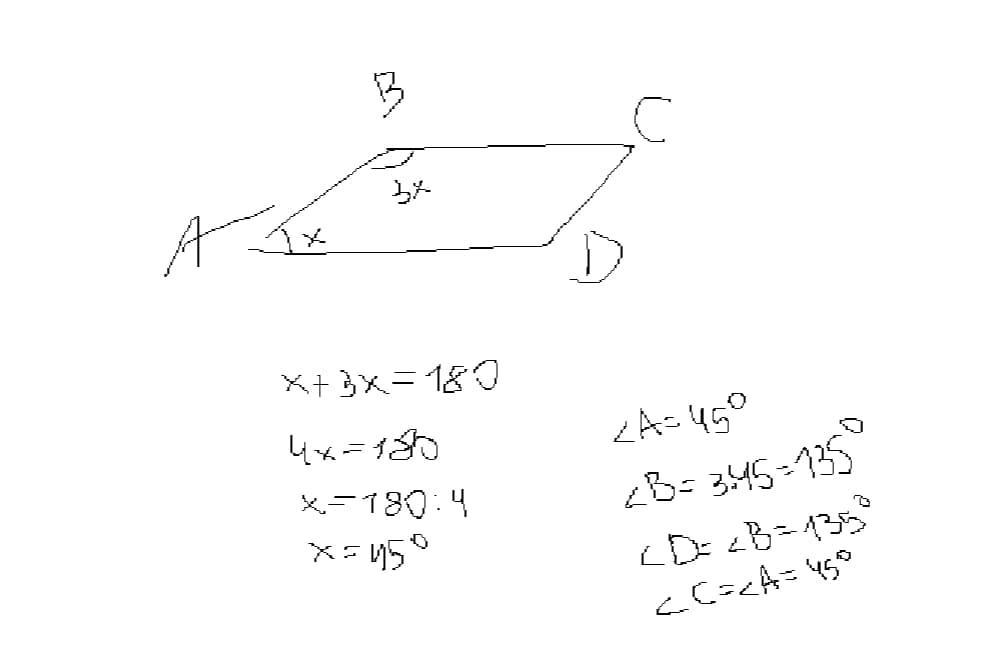 B
C
3x
A
x
D
x+3x=180
4x=180
x=180:4
x=45°
∠A=45°
∠B=3·45=135°
∠D=∠B=135°
∠C=∠A=45°